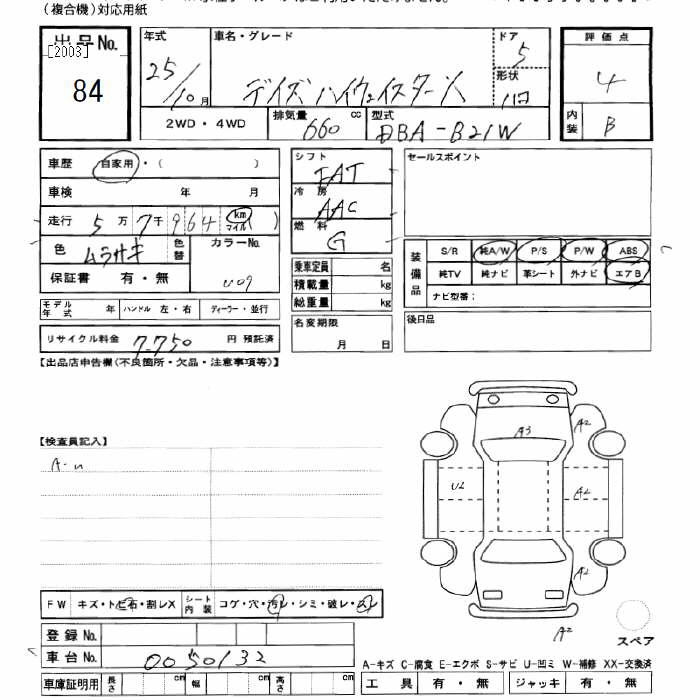 (複合機)対応用紙
出品No.
[2003]
84
年式 25/10月
車名・グレード デイズ ハイウェイスター X
ドア 5
形状
2WD・4WD
排気量 660 cc
型式 DBA-B21W
評価点 4
内装 B
車歴 自家用・( )
車検 年 月
走行 5万7千964 km マイル
色 ムラサキ
色替
カラーNo.
保証書 有・無
モデル年式 年 ハンドル 左・右 ディーラー・並行
リサイクル料金 7,750 円 預託済
シフト FAT
冷房 AAC
燃料 G
乗車定員 名
積載量 kg
総重量 kg
名変期限
月 日
セールスポイント
装備品
S/R 純A/W P/S P/W ABS
純TV 純ナビ 革シート 外ナビ エアB
ナビ型番:
後日品
【出品店申告欄(不良箇所・欠品・注意事項等)】
【検査員記入】
A-u
A3
A2
U2
A2
A2
A2
FW キズ・トビ石・割レX シート内装 コゲ・穴・汚レ・シミ・破レ・ム
登録No.
車台No. 0050132
車庫証明用 長さ cm 幅 cm 高さ cm
スペア
A-キズ C-腐食 E-エクボ S-サビ U-凹ミ W-補修 XX-交換済
工具 有・無 ジャッキ 有・無